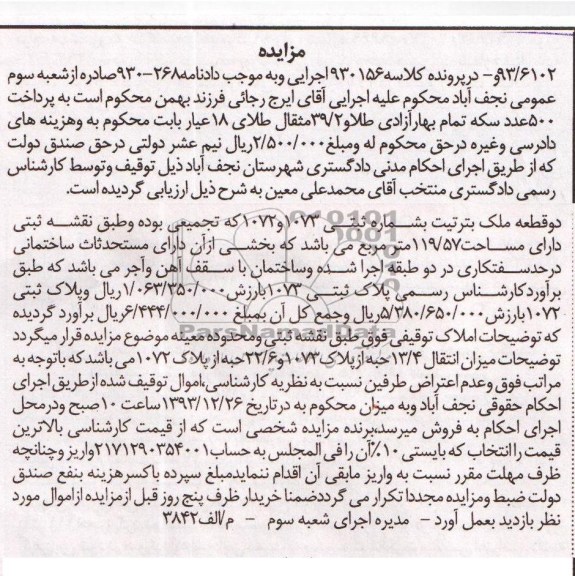 مزایده
۹۳/۶۱۰۲و- درپرونده کلاسه۹۳۰۱۵۶اجرایی وبه موجب دادنامه۲۶۸-۹۳۰صادره ازشعبه سوم
عمومی نجف آباد محکوم علیه اجرایی آقای ایرج رجائی فرزند بهمن محکوم است به پرداخت
۵۰۰عدد سکه تمام بهارآزادی طلاو۳۹/۲مثقال طلای ۱۸عیار بابت محکوم به وهزینه های
دادرسی وغیره درحق محکوم له ومبلغ۲/۵۰۰/۰۰۰ریال نیم عشر دولتی درحق صندق دولت
که از طریق اجرای احکام مدنی دادگستری شهرستان نجف آباد ذیل توقیف وتوسط کارشناس
رسمی دادگستری منتخب آقای محمدعلی معین به شرح ذیل ارزیابی گردیده است.
دوقطعه ملک بترتیت بشماره ثبتی ۱۰۷۳و۱۰۷۲که تجمیعی بوده وطبق نقشه ثبتی
دارای مساحت۱۱۹/۵۷مترمربع می باشد که بخشی ازآن دارای مستحدثاث ساختمانی
درحدسفتکاری در دو طبقه اجرا شده وساختمان با سقف آهن وآجر می باشد که طبق
برآوردکارشناس رسمی پلاک ثبتی ۱۰۷۳بارزش۱/۰۶۳/۳۵۰/۰۰۰ریال وپلاک ثبتی
۱۰۷۲بارزش۵/۳۸۰/۶۵۰/۰۰۰ریال وجمع کل آن بمبلغ ۶/۴۴۴/۰۰۰/۰۰۰ریال برآورد گردیده
که توضیحات املاک توقیفی فوق طبق نقشه ثبتی ومحدوده معینه موضوع مزایده قرار میگردد
توضیحات میزان انتقال ۱۳/۴حبه ازپلاک۱۰۷۳و۲۲/۶حبه از پلاک ۱۰۷۲می باشد که باتوجه به
مراتب فوق وعدم اعتراض طرفین نسبت به نظریه کارشناسی،اموال توقیف شده ازطریق اجرای
احکام حقوقی نجف آباد وبه میزان محکوم به درتاریخ ۱۳۹۳/۱۲/۲۶ساعت ۱۰صبح ودرمحل
اجرای احکام به فروش میرسد،برنده مزایده شخصی است که از قیمت کارشناسی بالاترین
قیمت راانتخاب که بایستی ۱۰٪آن رافی المجلس به حساب۲۱۷۱۲۹۰۳۵۴۰۰۱واریز وچنانچه
ظرف مهلت مقرر نسبت به واریز مابقی آن اقدام ننمایدمبلغ سپرده باکسرهزینه بنفع صندق
دولت ضبط ومزایده مجددا تکرار می گرددضمنا خریدار ظرف پنج روز قبل ازمزایده ازاموال مورد
نظر بازدید بعمل آورد - مدیره اجرای شعبه سوم - م/الف۳۸۴۲
ParsNamadData